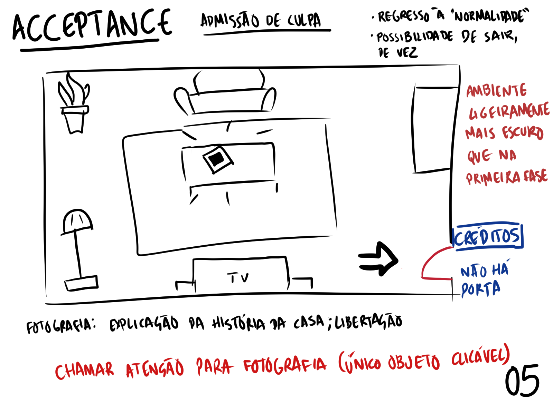 ACCEPTANCE
ADMISSÃO DE CULPA
• REGRESSO À "NORMALIDADE"
• POSSIBILIDADE DE SAIR,
DE VEZ
AMBIENTE
LIGEIRAMENTE
MAIS ESCURO
QUE NA
PRIMEIRA FASE
CRÉDITOS
NÃO HÁ
PORTA
TV
FOTOGRAFIA: EXPLICAÇÃO DA HISTÓRIA DA CASA; LIBERTAÇÃO
CHAMAR ATENÇÃO PARA FOTOGRAFIA (ÚNICO OBJETO CLICÁVEL)
05